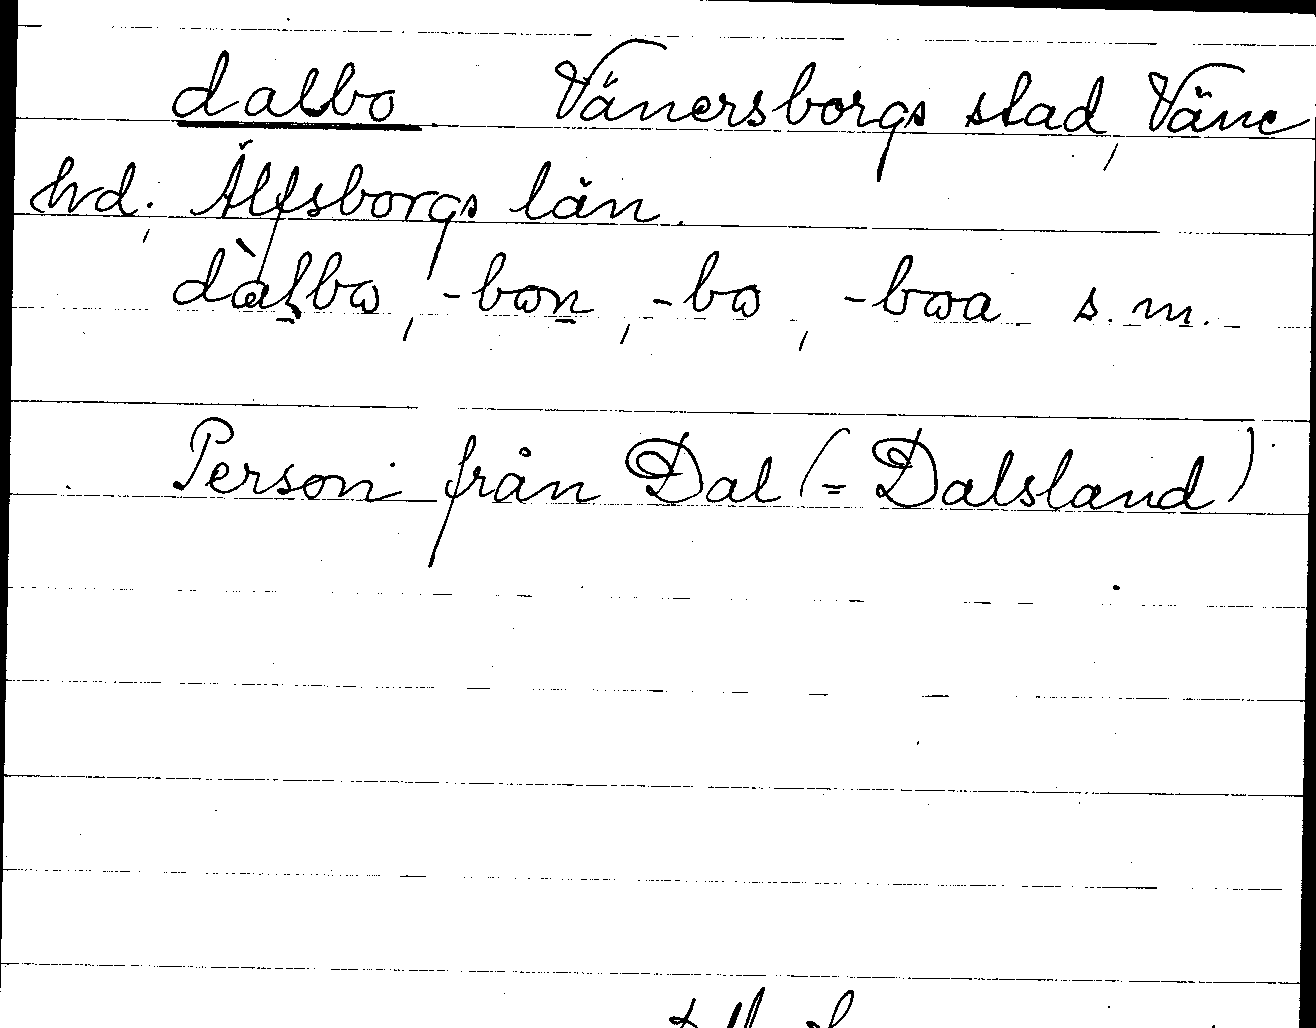 dalbo Vänersborgs stad, Väne
hrd; Älfsborgs län.
dàlbω, -bωn, -bω, -bωa s.m.
Person från Dal (= Dalsland)